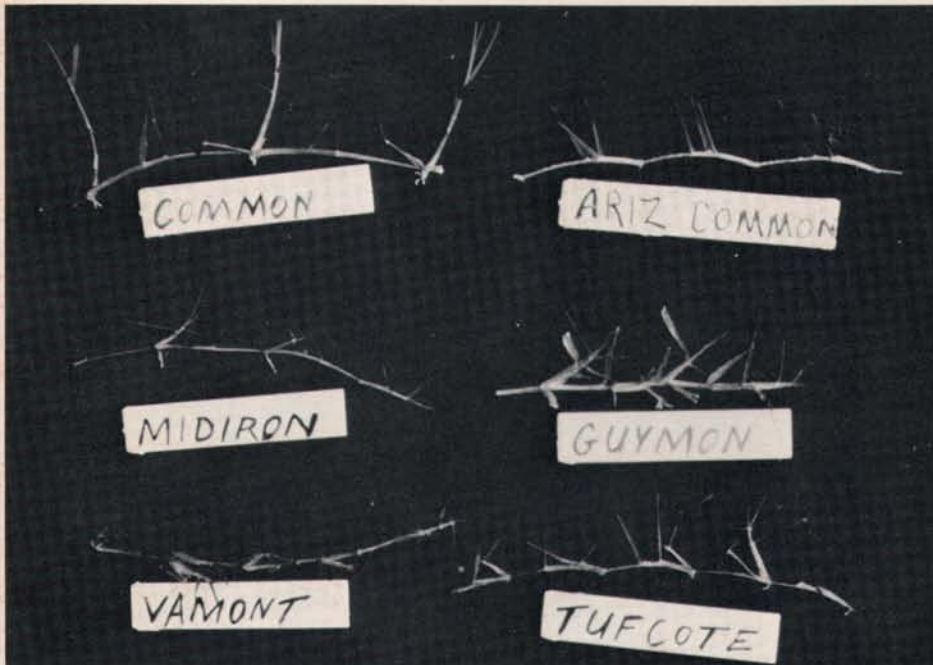 COMMON
ARIZ COMMON
MIDIRON
GUYMON
VAMONT
TUFCOTE